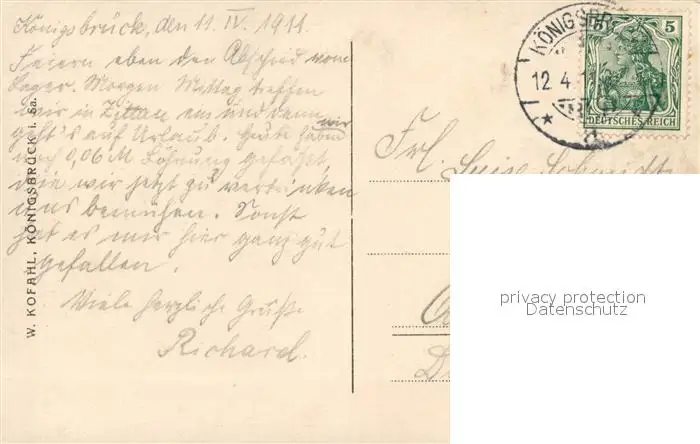 Königsbrück, den 11. IV. 1911.
Feiern eben den Abschied vom
Lager. Morgen Mittag treffen
wir in Zittau ein und dann
geht's auf Urlaub. Heute haben wir
noch 0,06 M Löhnung gefaßt,
die wir jetzt zu vertrinken
uns bemühen. Sonst
hat es mir hier ganz gut
gefallen.
Viele herzliche Grüße
Richard.
W. KOFAHL, KÖNIGSBRÜCK i. Sa.
KÖNIGSBR
12.4.
5
DEUTSCHES REICH
Frl. Luise Schmidt
privacy protection
Datenschutz